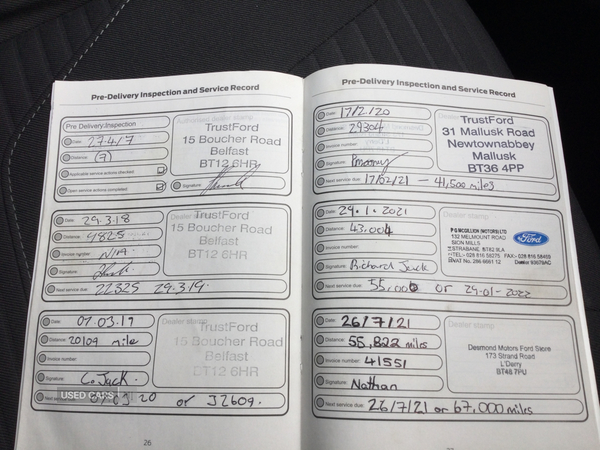 Pre-Delivery Inspection and Service Record
Pre Delivery Inspection
Date: 27.4.17
Distance: (7)
Applicable service actions checked:
Open service actions completed:
TrustFord
15 Boucher Road
Belfast
BT12 6HR
Signature:
Date: 29.3.18
Distance: 9825
Invoice number: N/A
Signature:
Next service due: 22325 29.3.19.
Dealer stamp
TrustFord
15 Boucher Road
Belfast
BT12 6HR
Date: 07.03.19
Distance: 20109 mile
Invoice number:
Signature: C. Jack.
Next se 07.03.20 or 32609.
Dealer stamp
TrustFord
15 Boucher Road
Belfast
BT12 6HR
USED CARS NI
26
Pre-Delivery Inspection and Service Record
Date: 17/2/20
Distance: 29304
Invoice number:
Signature: P Mooney
Next service due: 17/02/21 - 41,500 miles
TrustFord
31 Mallusk Road
Newtownabbey
Mallusk
BT36 4PP
Date: 29.1.2021
Distance: 43,004
Invoice number:
Signature: Richard Jack
Next service due: 55,000 or 29-01-2022
Dealer stamp
P G MCGILLION (MOTORS) LTD
132 MELMOUNT ROAD
SION MILLS
STRABANE BT82 9LA
Ford
Date: 26/7/21
Distance: 55,822 miles
Invoice number: 41551
Signature: Nathan
Next service due: 26/7/21 or 67,000 miles
Dealer stamp
Desmond Motors Ford Store
173 Strand Road
L'Derry
BT48 7PU